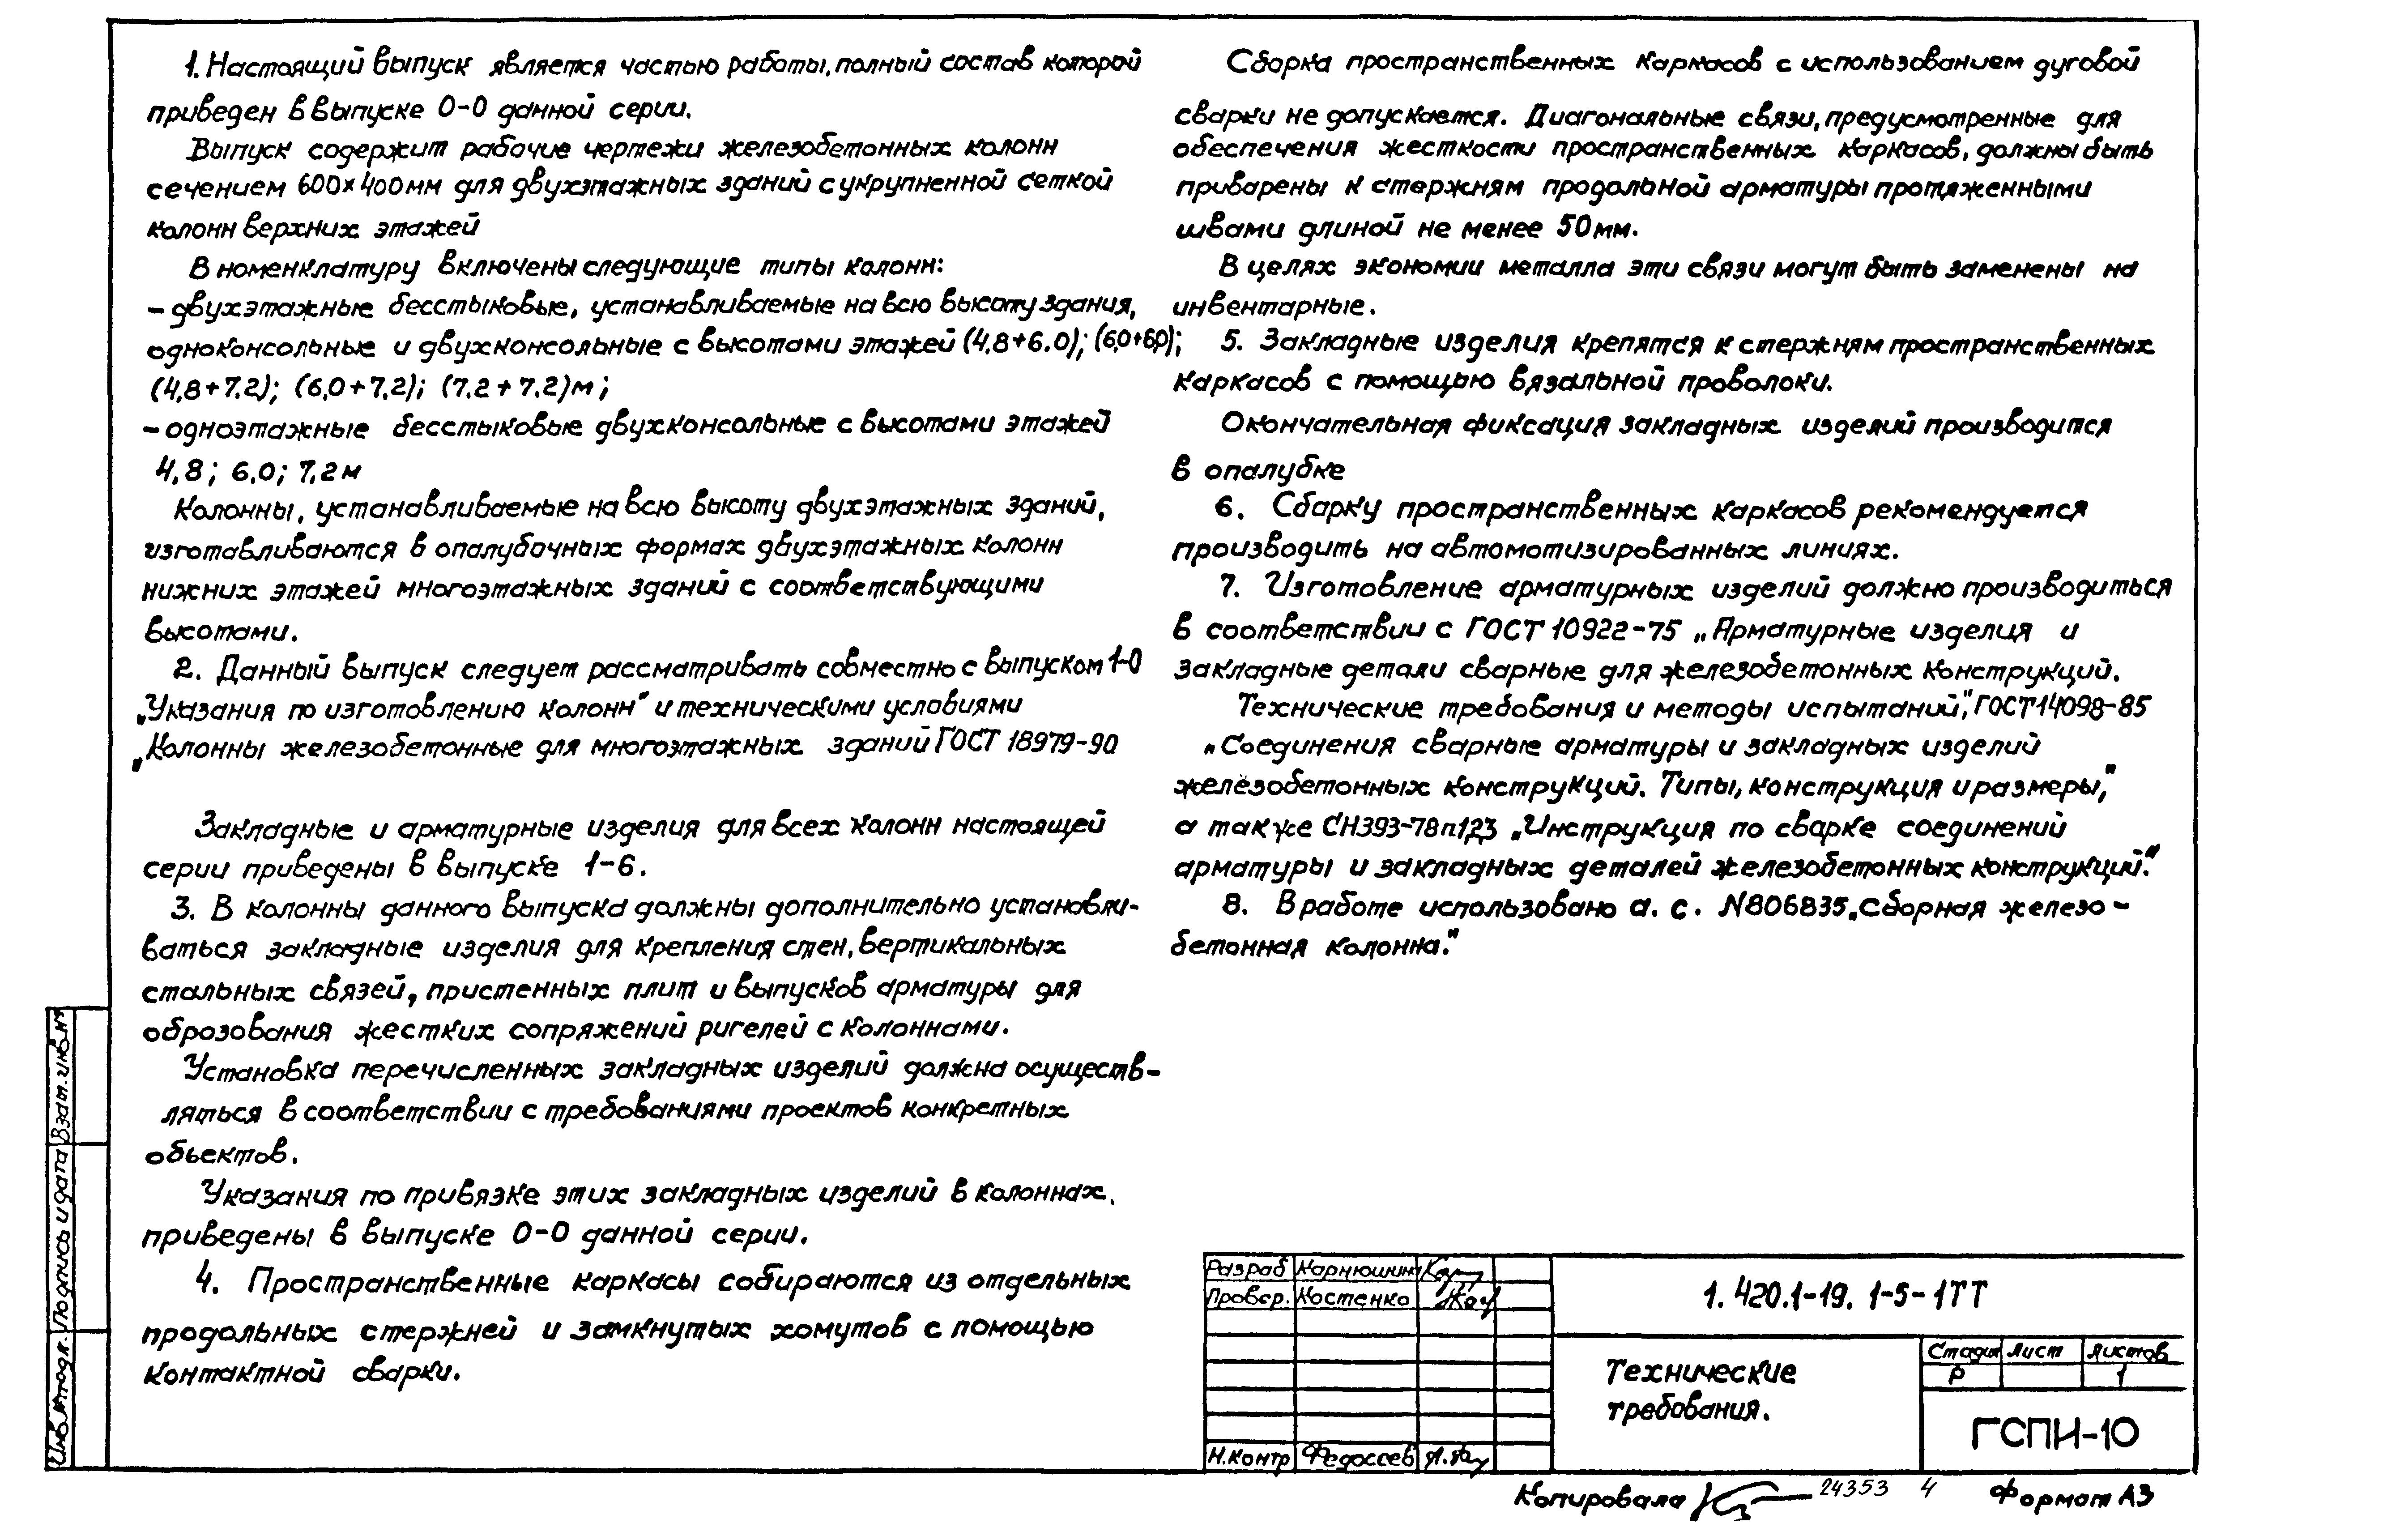 1. Настоящий выпуск является частью работы, полный состав которой
приведен в выпуске 0-0 данной серии.
Выпуск содержит рабочие чертежи железобетонных колонн
сечением 600х400мм для двухэтажных зданий с укрупненной сеткой
колонн верхних этажей
В номенклатуру включены следующие типы колонн:
-двухэтажные бесстыковые, устанавливаемые на всю высоту здания,
одноконсольные и двухконсольные с высотами этажей (4,8+6.0); (6,0+6,0);
(4,8+7.2); (6,0+7,2); (7.2+7.2)м;
-одноэтажные бесстыковые двухконсольные с высотами этажей
4,8; 6.0; 7,2м
Колонны, устанавливаемые на всю высоту двухэтажных зданий,
изготавливаются в опалубочных формах двухэтажных колонн
нижних этажей многоэтажных зданий с соответствующими
высотами.
2. Данный выпуск следует рассматривать совместно с выпуском 1-0
„Указания по изготовлению колонн" и техническими условиями
„Колонны железобетонные для многоэтажных зданий ГОСТ 18979-90
Закладные и арматурные изделия для всех колонн настоящей
серии приведены в выпуске 1-6.
3. В колонны данного выпуска должны дополнительно установли-
ваться закладные изделия для крепления стен, вертикальных
стальных связей, пристенных плит и выпусков арматуры для
оброзования жестких сопряжений ригелей с колоннами.
Установка перечисленных закладных изделий должна осуществ-
ляться в соответствии с требованиями проектов конкретных
обьектов.
Указания по привязке этих закладных изделий в колоннах.
приведены в выпуске 0-0 данной серии.
4. Пространственные каркасы собираются из отдельных
продольных стержней и замкнутых хомутов с помощью
контактной сварки.
Сборка пространственных каркасов с использованием дуговой
сварки не допускается. Диагональные связи, предусмотренные для
обеспечения жесткости пространственных каркасов, должны быть
приварены к стержням продольной арматуры протяженными
швами длиной не менее 50мм.
В целях экономии металла эти связи могут быть заменены на
инвентарные.
5. Закладные изделия крепятся к стержням пространственных
каркасов с помощью вязальной проволоки.
Окончательная фиксация закладных изделий производится
в опалубке
6. Сборку пространственных каркасов рекомендуется
производить на автомотизированных линиях.
7. Изготовление арматурных изделий должно производиться
в соответствии с ГОСТ 10922-75 „Арматурные изделия и
закладные детали сварные для железобетонных конструкций.
Технические требования и методы испытаний", ГОСТ14098-85
„Соединения сварные арматуры и закладных изделий
железобетонных конструкций. Типы, конструкция и размеры,"
а также СН393-78п1,2,3 „Инструкция по сварке соединений
арматуры и закладных деталей железобетонных конструкций."
8. В работе использовано а. с. N806835„Сборная железо-
бетонная колонна."
Взат. инв. н
Подпись и дата
Инв. № подл.
Разраб Карнюшин
Провер. Костенко
Н.контр Федоссев
1. 420.1-19. 1-5-1ТТ
Технические
требования.
Стадия Лист Листов
Р 1
ГСПИ-10
Копировала 24353 4 Формат А3